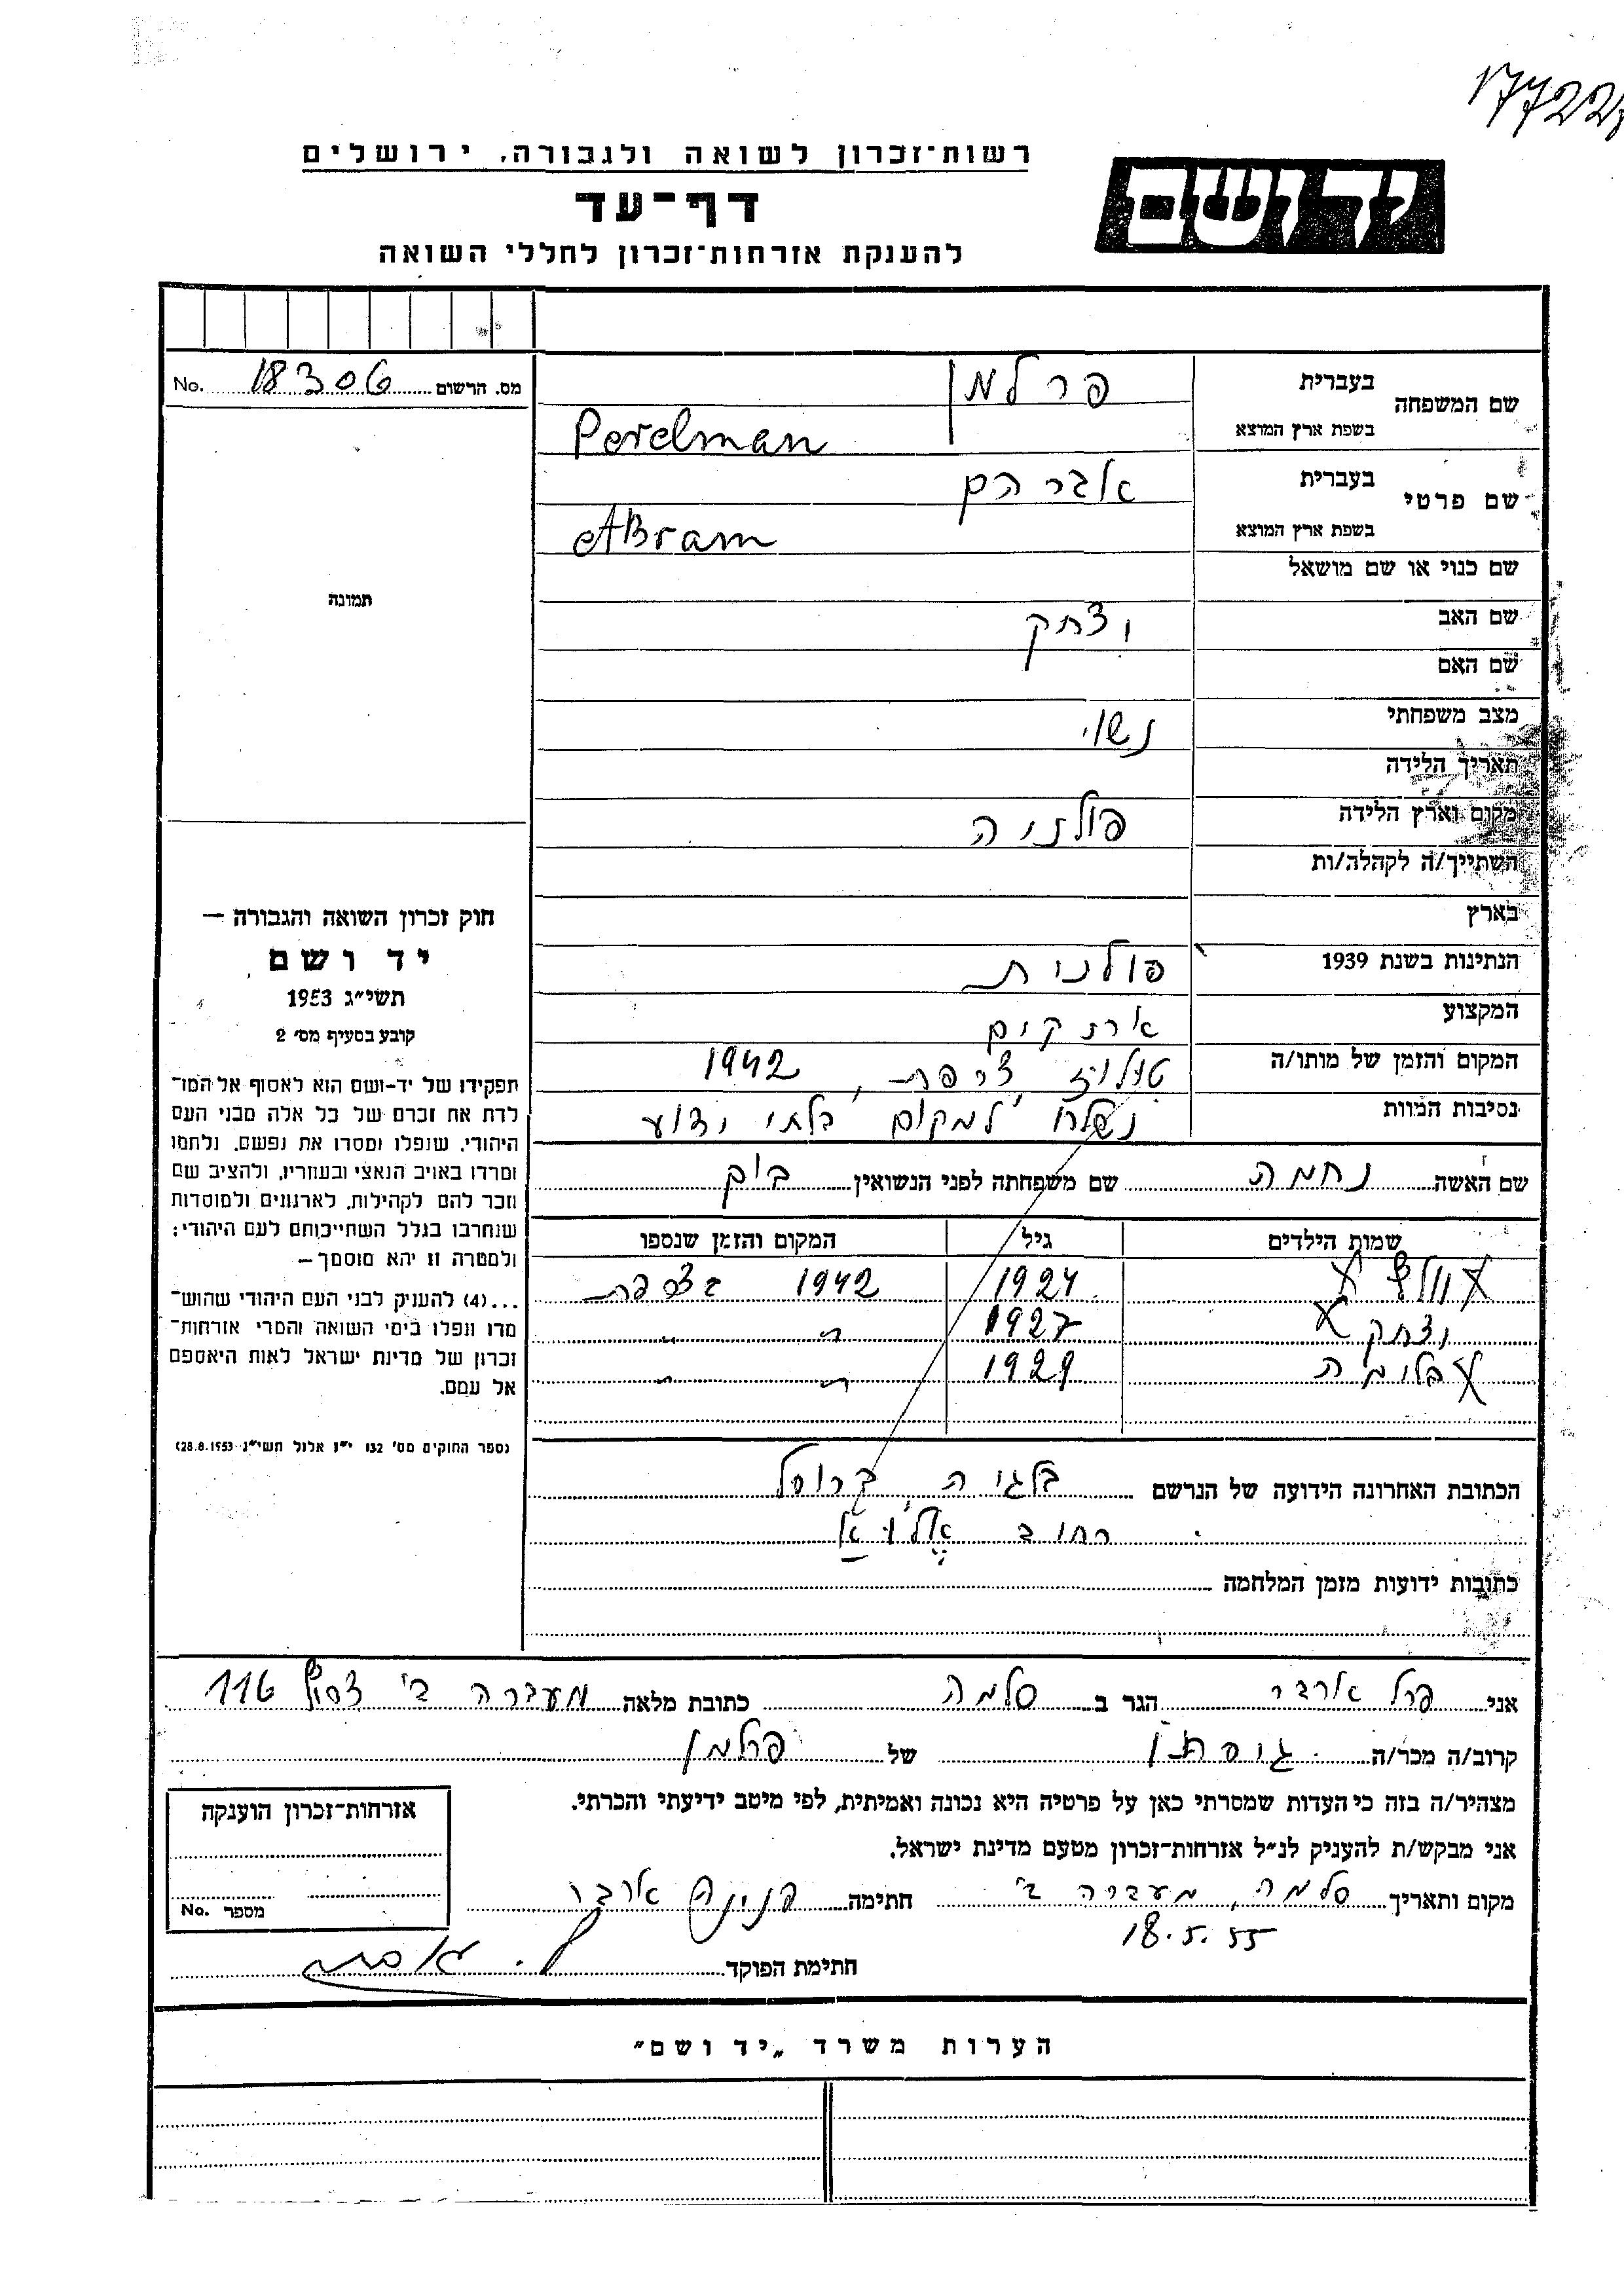 17722
רשות־זכרון לשואה ולגבורה, ירושלים
יד ושם
דף־עד
להענקת אזרחות־זכרון לחללי השואה
No. 18306 מס. הרשום
שם המשפחה בעברית פרלמן
בשפת ארץ המוצא Perelman
שם פרטי בעברית אברהם
בשפת ארץ המוצא Abram
שם כנוי או שם מושאל
שם האב יצחק
שם האם
מצב משפחתי נשוי
תאריך הלידה
מקום וארץ הלידה פולניה
השתייך/ה לקהלה/ות
בארץ
הנתינות בשנת 1939 פולנית
המקצוע
המקום והזמן של מותו/ה טולוז צרפת, 1942
נסיבות המוות נשלח למקום בלתי ידוע
שם האשה נחמה שם משפחתה לפני הנשואין
שמות הילדים גיל המקום והזמן שנספו
1924 1942 צרפת
יצחק 1927 " "
1929 " "
הכתובת האחרונה הידועה של הנרשם בלגיה ברוסל
רחוב
כתובות ידועות מזמן המלחמה
תמונה
חוק זכרון השואה והגבורה —
יד ושם
תשי״ג 1953
קובע בסעיף מס׳ 2
תפקידו של יד־ושם הוא לאסוף אל המו־
לדת את זכרם של כל אלה מבני העם
היהודי, שנפלו ומסרו את נפשם, נלחמו
ומרדו באויב הנאצי ובעוזריו, ולהציב שם
וזכר להם לקהילות, לארגונים ולמוסדות
שנחרבו בגלל השתייכותם לעם היהודי;
ולמטרה זו יהא מוסמך —
...(4) להעניק לבני העם היהודי שהוש־
מדו ונפלו בימי השואה והמרי אזרחות־
זכרון של מדינת ישראל לאות היאספם
אל עמם.
(ספר החוקים מס׳ 132 י״ז אלול תשי״ג 28.8.1953)
אני פרל ארבר הגר ב סלמה כתובת מלאה מעברה ב׳ צריף 116
קרוב/ה מכר/ה של פרלמן
מצהיר/ה בזה כי העדות שמסרתי כאן על פרטיה היא נכונה ואמיתית, לפי מיטב ידיעתי והכרתי.
אני מבקש/ת להעניק לנ״ל אזרחות־זכרון מטעם מדינת ישראל.
מקום ותאריך סלמה, מעברה ב׳ חתימה ארבר
18.5.55
חתימת הפוקד
אזרחות־זכרון הוענקה
מספר No.
הערות משרד „יד ושם״